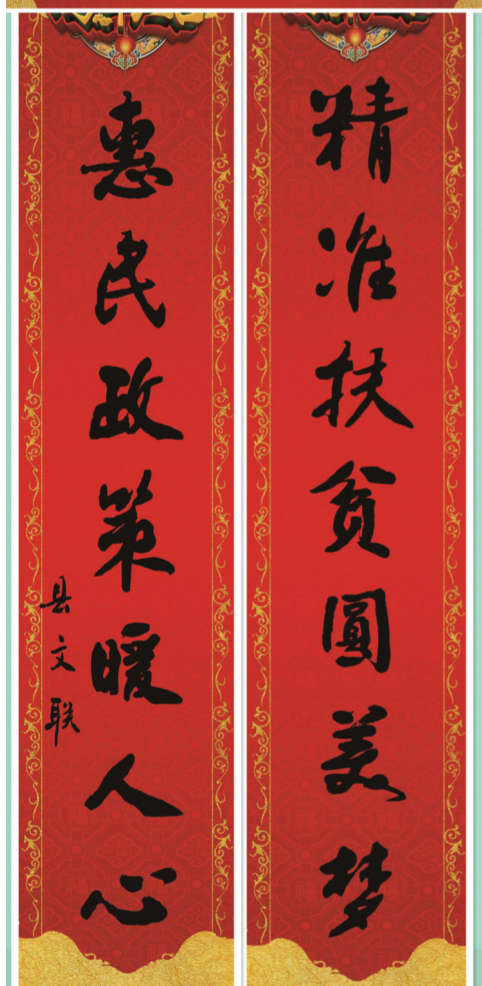 精准扶贫圓美梦
惠民政策暖人心
县文联